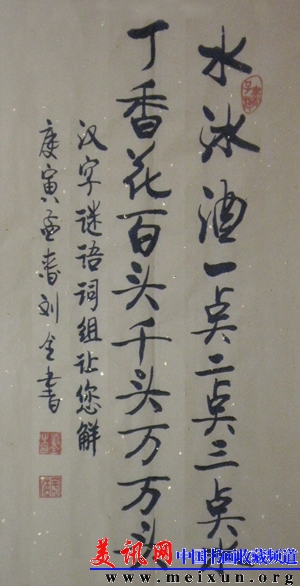 水冰酒一点二点三点水
丁香花百头千头万万头
汉字谜语词组让您解
庚寅孟春刘全書
美讯网 中国书画收藏频道
www.meixun.org